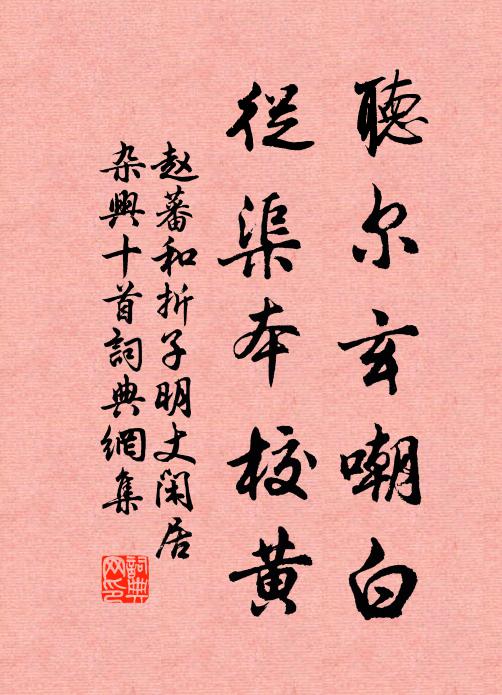 聽尔玄嘲白
從渠本校黄
赵蕃和折子明丈闲居
杂興十首詞典網集
詞典网印